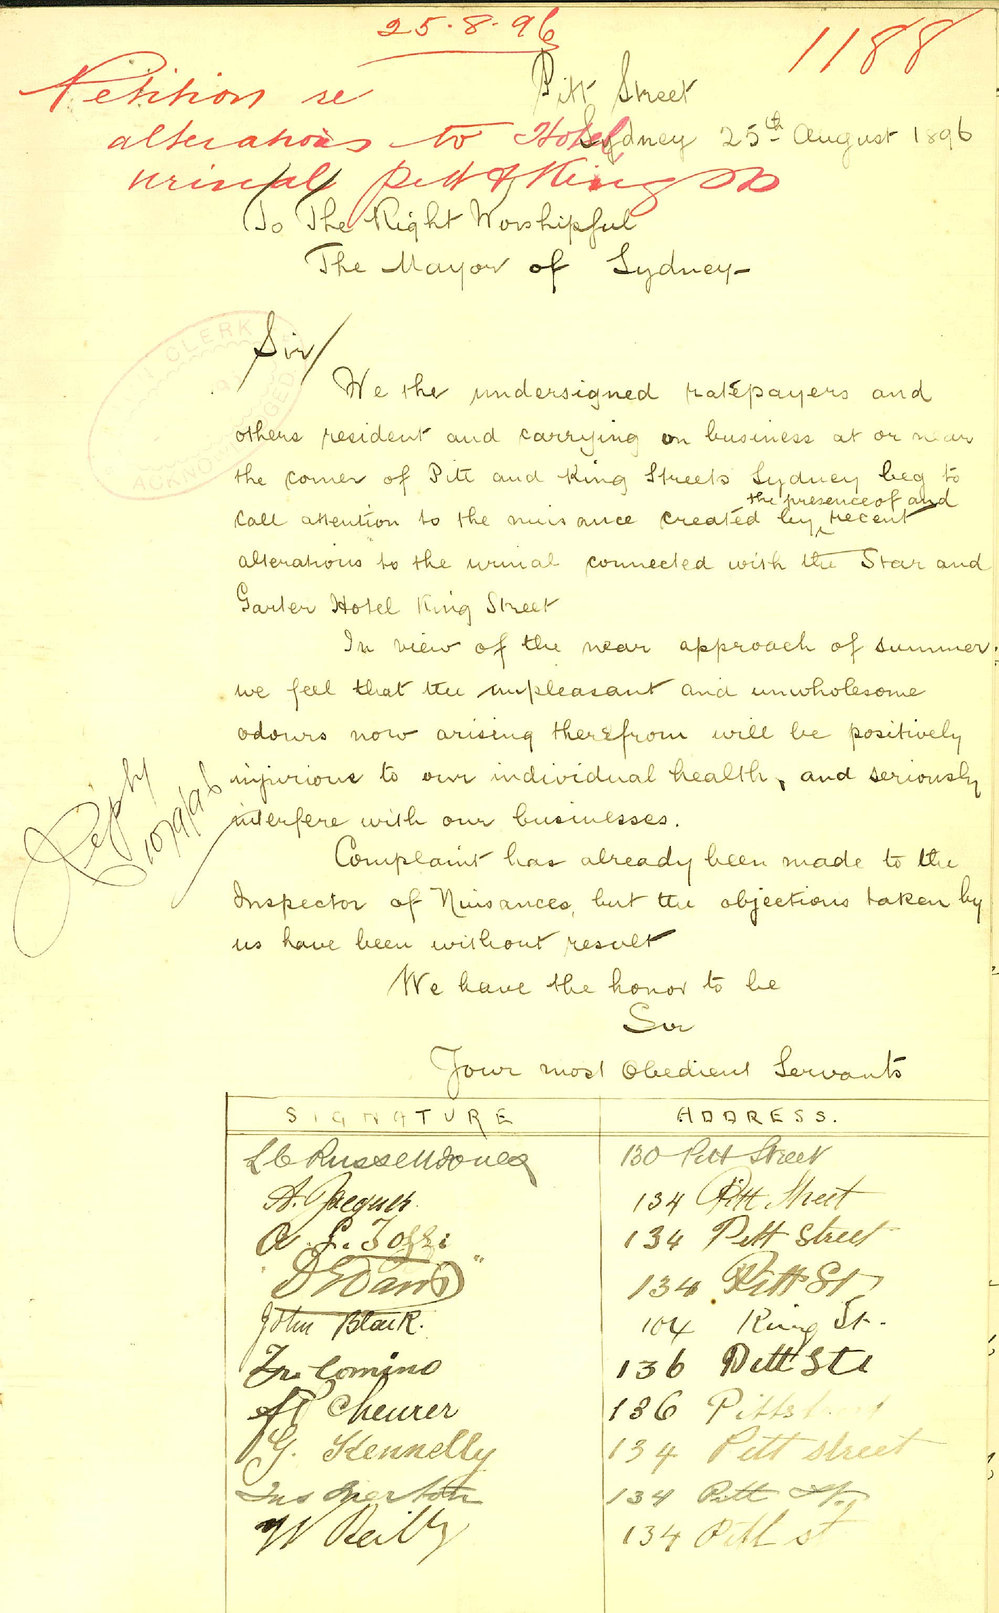 25.8.96
1188
Petition re
alterations to Hotel
urinal Pitt & King Sts
Pitt Street
Sydney 25th August 1896
To The Right Worshipful
The Mayor of Sydney
CLERK
ACKNOWLEDGED
Sir/
We the undersigned ratepayers and
others resident and carrying on business at or near
the corner of Pitt and King Streets Sydney beg to
the presence of and
call attention to the nuisance created by recent
alterations to the urinal connected with the Star and
Garter Hotel King Street
In view of the near approach of summer.
we feel that the unpleasant and unwholesome
odours now arising therefrom will be positively
injurious to our individual health, and seriously
interfere with our businesses.
Reply
10/9/96
Complaint has already been made to the
Inspector of Nuisances, but the objections taken by
us have been without result
We have the honor to be
Sir
Your most Obedient Servants
SIGNATURE ADDRESS.
Russell Jones 130 Pitt Street
A. Jaques 134 Pitt Street
A. L. Tozzi 134 Pitt Street
134 Pitt St
John Black. 104 King St.
Comino 136 Pitt St
Cheurer 136 Pitt street
G. Kennelly 134 Pitt street
134 Pitt St.
W Reilly 134 Pitt st